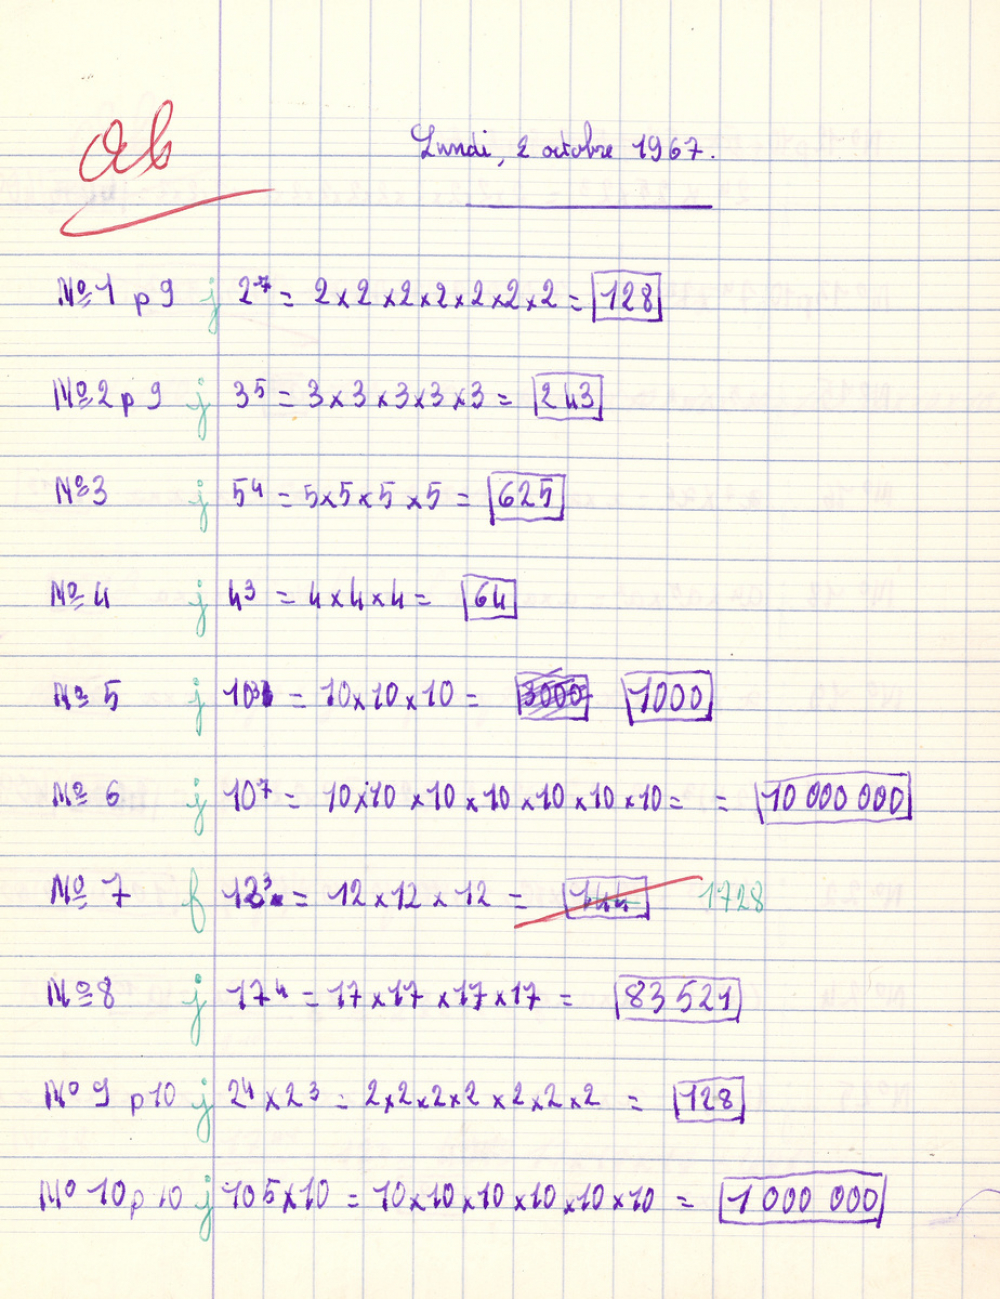 ab
Lundi, 2 octobre 1967.
Nº 1 p 9 j 2⁷ = 2 x 2 x 2 x 2 x 2 x 2 x 2 = 128
Nº 2 p 9 j 3⁵ = 3 x 3 x 3 x 3 x 3 = 243
Nº 3 j 5⁴ = 5 x 5 x 5 x 5 = 625
Nº 4 j 4³ = 4 x 4 x 4 = 64
Nº 5 j 10³ = 10 x 10 x 10 = 3000 1000
Nº 6 j 10⁷ = 10 x 10 x 10 x 10 x 10 x 10 x 10 = = 10 000 000
Nº 7 f 12³ = 12 x 12 x 12 = 144 1728
Nº 8 j 17⁴ = 17 x 17 x 17 x 17 = 83 521
Nº 9 p 10 j 2⁴ x 2³ = 2 x 2 x 2 x 2 x 2 x 2 x 2 = 128
Nº 10 p 10 j 10⁵ x 10 = 10 x 10 x 10 x 10 x 10 x 10 = 1 000 000